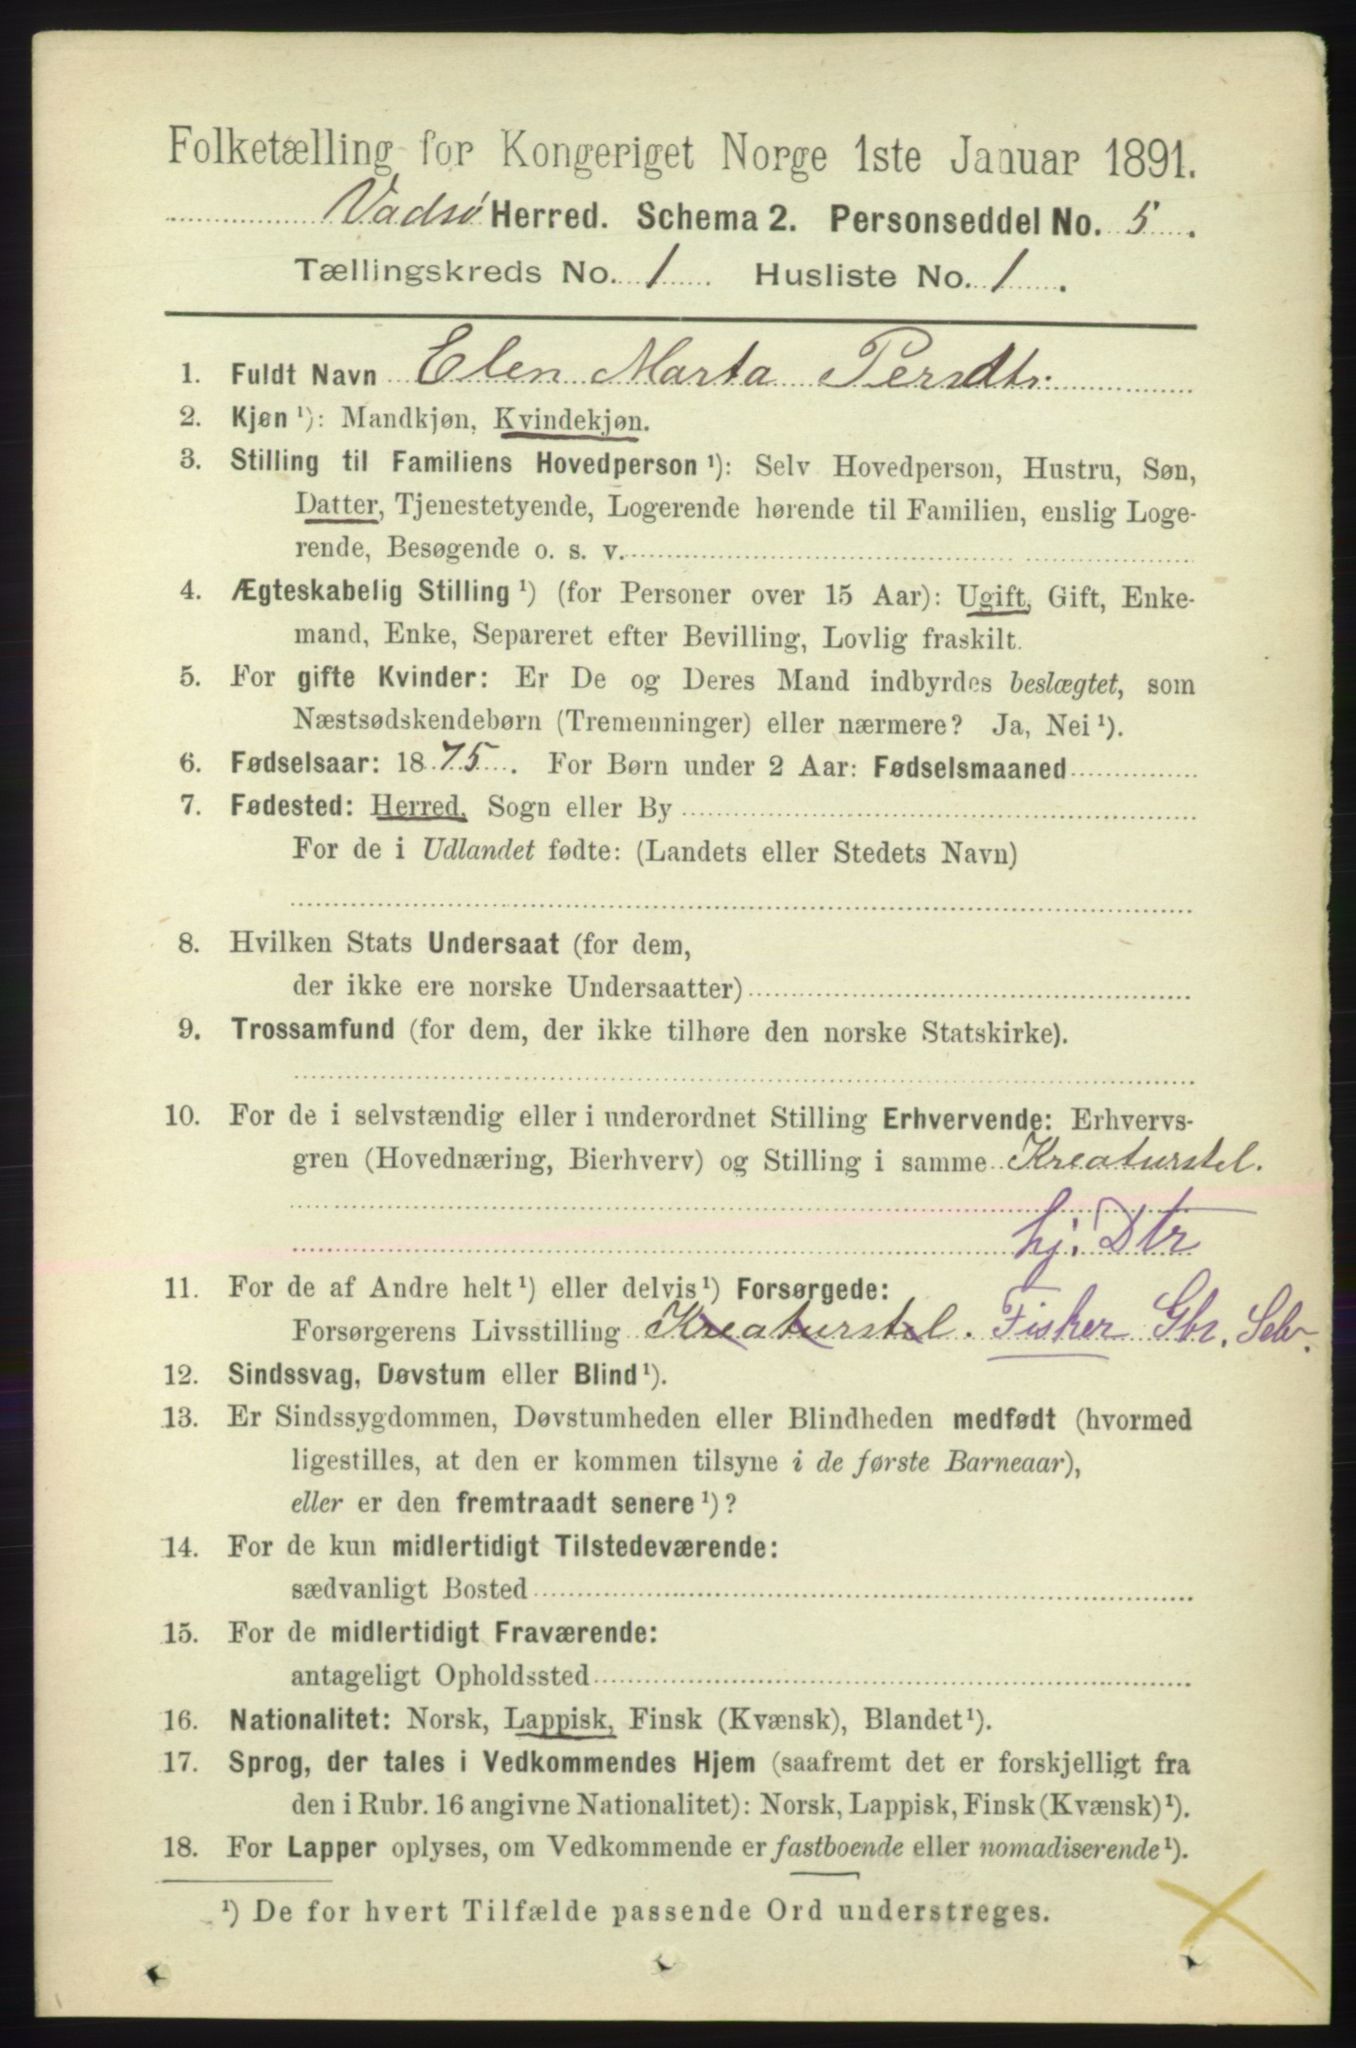 Folketælling for Kongeriget Norge 1ste Januar 1891.
Vadsø Herred. Schema 2. Personseddel No. 5.
Tællingskreds No. 1 Husliste No. 1.
1. Fuldt Navn Elen Marta Persdtr.
2. Kjøn ¹): Mandkjøn, Kvindekjøn.
3. Stilling til Familiens Hovedperson ¹): Selv Hovedperson, Hustru, Søn,
Datter, Tjenestetyende, Logerende hørende til Familien, enslig Loge-
rende, Besøgende o. s. v.
4. Ægteskabelig Stilling ¹) (for Personer over 15 Aar): Ugift, Gift, Enke-
mand, Enke, Separeret efter Bevilling, Lovlig fraskilt.
5. For gifte Kvinder: Er De og Deres Mand indbyrdes beslægtet, som
Næstsødskendebørn (Tremenninger) eller nærmere? Ja, Nei ¹).
6. Fødselsaar: 1875. For Børn under 2 Aar: Fødselsmaaned
7. Fødested: Herred, Sogn eller By
For de i Udlandet fødte: (Landets eller Stedets Navn)
8. Hvilken Stats Undersaat (for dem,
der ikke ere norske Undersaatter)
9. Trossamfund (for dem, der ikke tilhøre den norske Statskirke).
10. For de i selvstændig eller i underordnet Stilling Erhvervende: Erhvervs-
gren (Hovednæring, Bierhverv) og Stilling i samme Kreaturstel.
hj. Dtr
11. For de af Andre helt ¹) eller delvis ¹) Forsørgede:
Forsørgerens Livsstilling Kreaturstel. Fisker Gbr. Selv.
12. Sindssvag, Døvstum eller Blind ¹).
13. Er Sindssygdommen, Døvstumheden eller Blindheden medfødt (hvormed
ligestilles, at den er kommen tilsyne i de første Barneaar),
eller er den fremtraadt senere ¹)?
14. For de kun midlertidigt Tilstedeværende:
sædvanligt Bosted
15. For de midlertidigt Fraværende:
antageligt Opholdssted
16. Nationalitet: Norsk, Lappisk, Finsk (Kvænsk), Blandet ¹).
17. Sprog, der tales i Vedkommendes Hjem (saafremt det er forskjelligt fra
den i Rubr. 16 angivne Nationalitet): Norsk, Lappisk, Finsk (Kvænsk) ¹).
18. For Lapper oplyses, om Vedkommende er fastboende eller nomadiserende ¹).
¹) De for hvert Tilfælde passende Ord understreges.